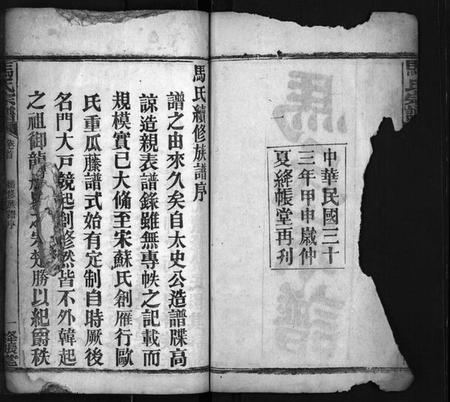 中華民國三十
三年甲申歲仲
夏絳帳堂再刊
馬氏續修族譜序
譜之由來久矣自太史公造譜牒高
諒造親表譜錄雖無專帙之記載而
規模實已大備至宋蘇氏創雁行歐
氏重瓜藤譜式始有定制自時厥後
名門大戶競起創修然皆不外韓起
之祖御龍
勝以紀爵秩